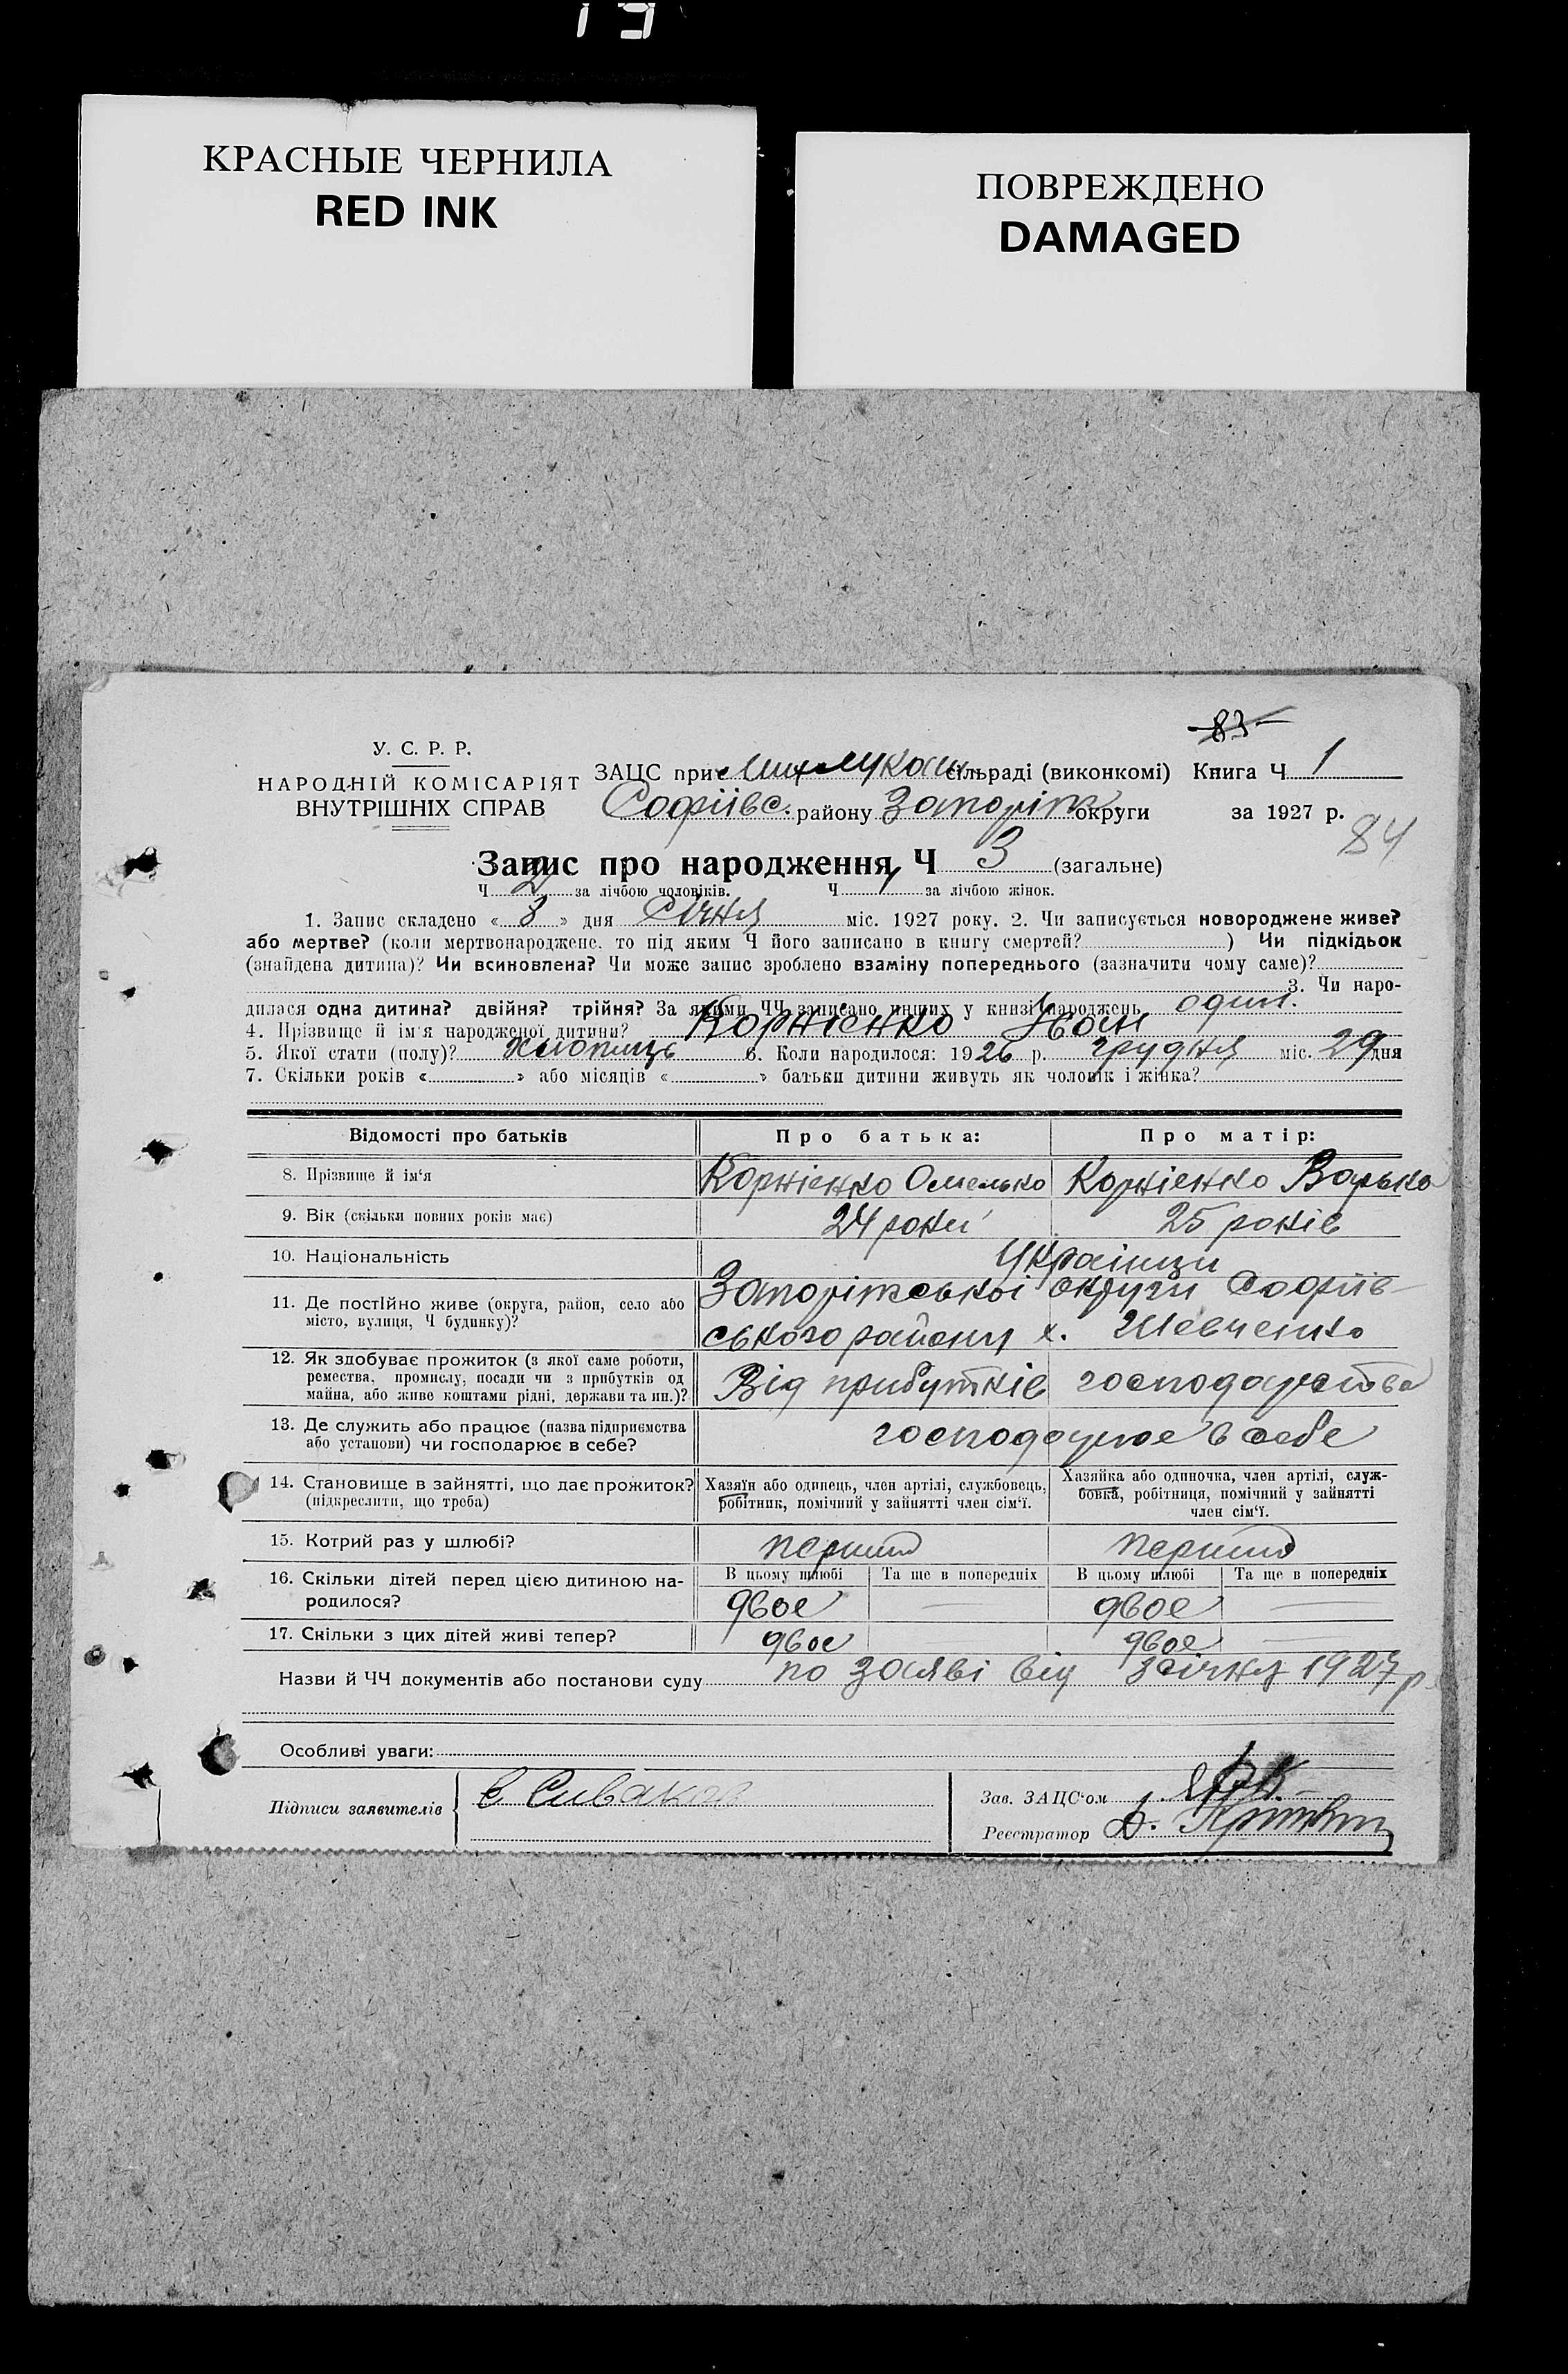 19
КРАСНЫЕ ЧЕРНИЛА
RED INK
ПОВРЕЖДЕНО
DAMAGED
83
У. С. Р. Р.
НАРОДНІЙ КОМІСАРІЯТ
ВНУТРІШНІХ СПРАВ
ЗАЦС при сільраді (виконкомі) Книга Ч 1
Софіївс. району Запоріж округи за 1927 р.
84
Запис про народження Ч 3 (загальне)
Ч 2 за лічбою чоловіків. Ч 1 за лічбою жінок.
1. Запис складено « 3 » дня Січня міс. 1927 року. 2. Чи записується новороджене живе?
або мертве? (коли мертвонароджене, то під яким Ч його записано в книгу смертей? ) Чи підкідьок
(знайдена дитина)? Чи всиновлена? Чи може запис зроблено взаміну попереднього (зазначити чому саме)?
3. Чи наро-
дилася одна дитина? двійня? трійня? За якими ЧЧ записано инших у книзі народжень один.
4. Прізвище й ім'я народженої дитини? Корнієнко Іван
5. Якої стати (полу)? хлопиць 6. Коли народилося: 1926 р. грудня міс. 29 дня
7. Скільки років « » або місяців « » батьки дитини живуть як чоловік і жінка?
Відомості про батьків Про батька: Про матір:
8. Прізвище й ім'я Корнієнко Омелько Корнієнко Варька
9. Вік (скільки повних років має) 24 роки 25 років
10. Національність Українци
11. Де постійно живе (округа, район, село або
місто, вулиця, Ч будинку)? Запоріжської округи Софіїв-
ського району х. Шевченко
12. Як здобуває прожиток (з якої саме роботи,
ремества, промислу, посади чи з прибутків од
майна, або живе коштами рідні, держави та ин.)? Від прибутків господарства
13. Де служить або працює (назва підприємства
або установи) чи господарює в себе? господарює в себе
14. Становище в зайнятті, що дає прожиток?
(підкреслити, що треба)
Хазяїн або одинець, член артілі, службовець,
робітник, помічний у зайнятті член сім'ї.
Хазяйка або одиночка, член артілі, служ-
бовка, робітниця, помічний у зайнятті
член сім'ї.
15. Котрий раз у шлюбі? перший перший
16. Скільки дітей перед цією дитиною на-
родилося?
В цьому шлюбі Та ще в попередніх В цьому шлюбі Та ще в попередніх
двое — двое —
17. Скільки з цих дітей живі тепер? двое двое —
Назви й ЧЧ документів або постанови суду по заяві від 3 січня 1927 р.
Особливі уваги:
Підписи заявителів
Зав. ЗАЦС'ом
Реєстратор